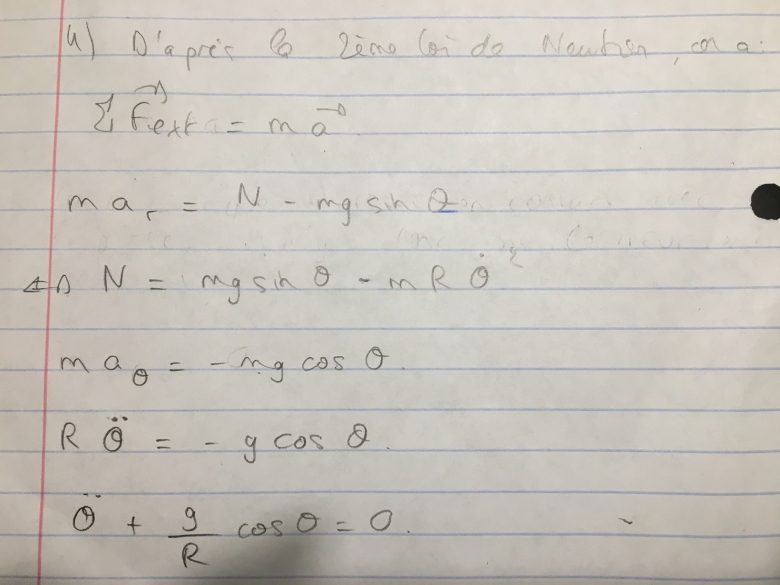 4) D'après la 2ème loi de Newton, on a:
Σ F⃗ext = m a⃗
m a_r = N - mg sin θ
⇔ N = mg sin θ - m R θ̇²
m a_θ = - mg cos θ.
R θ̈ = - g cos θ.
θ̈ + g/R cos θ = 0.